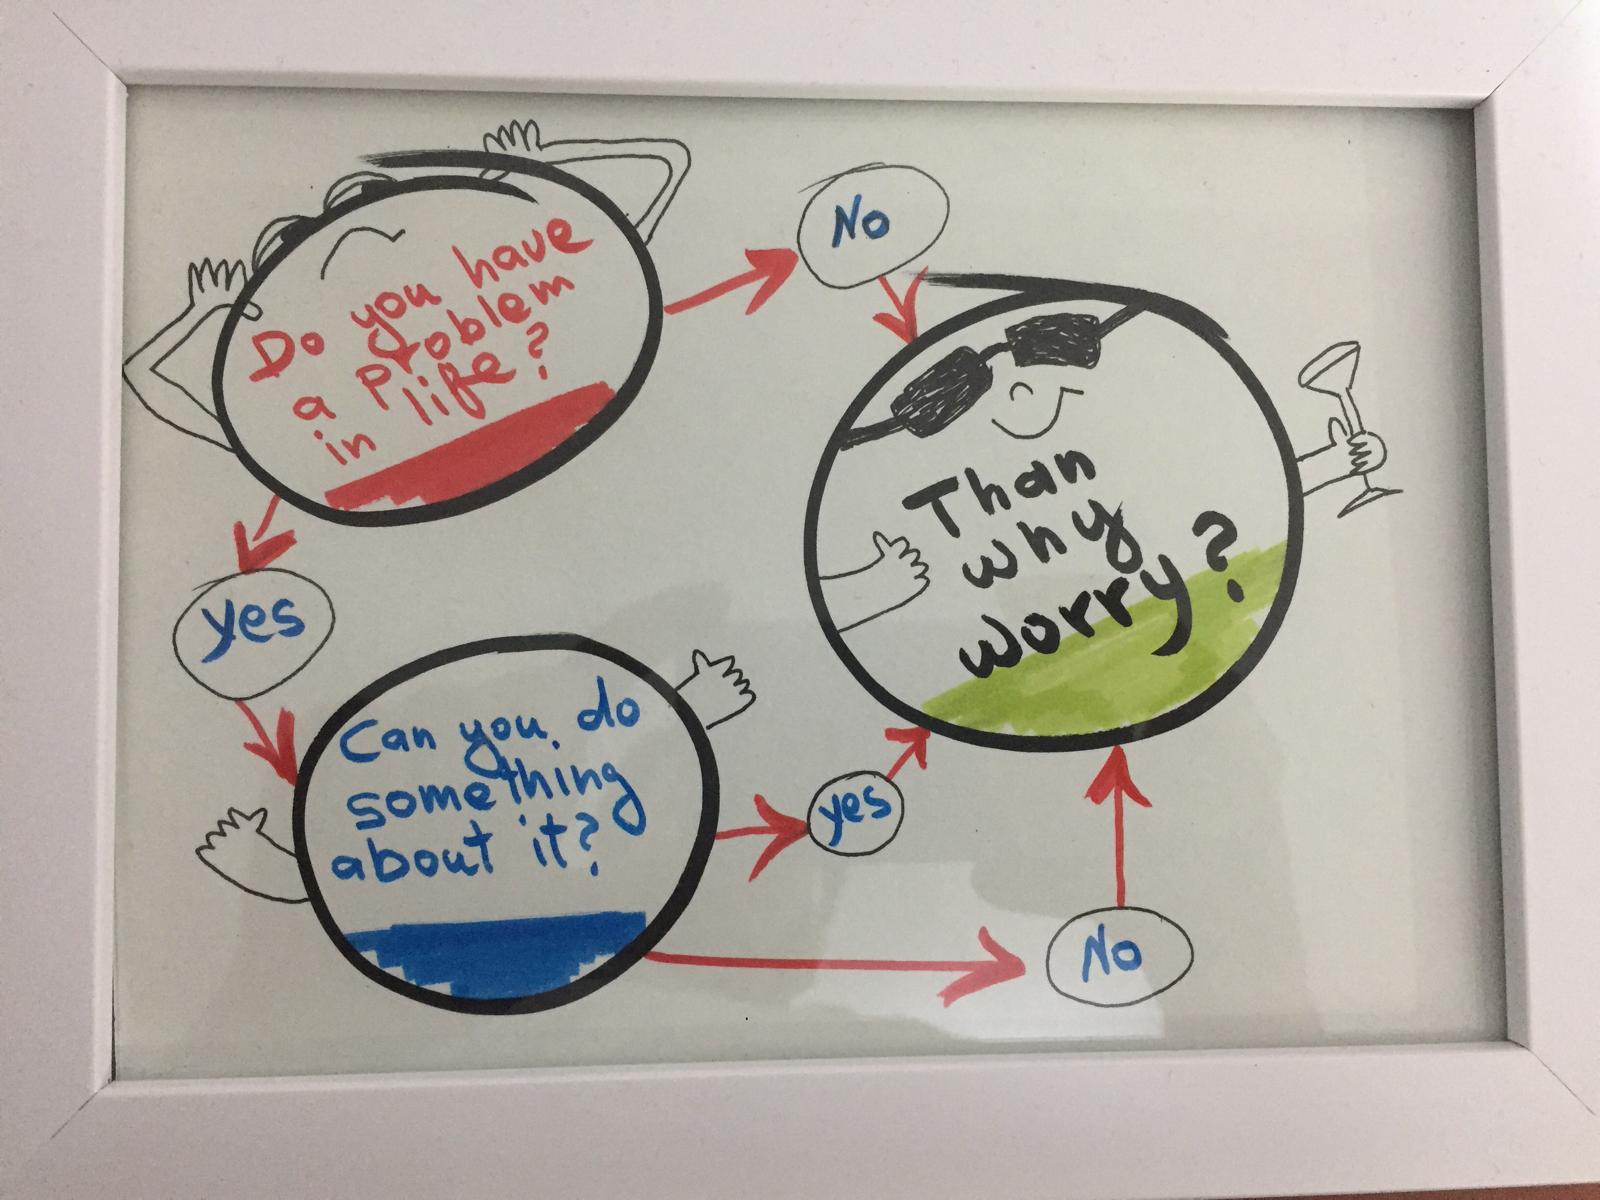 Do you have
a problem
in life?
No
Yes
Than
why
worry?
Can you do
something
about it?
yes
No